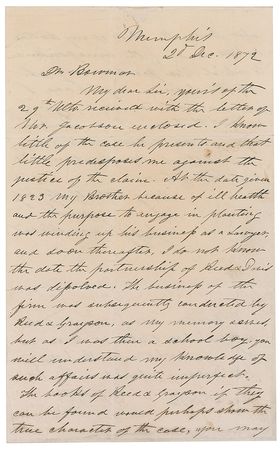 Memphis
2d Dec. 1872
Dr Bowmar
My dear Sir, yours of the
29th Ulto received with the letter of
Mr. Jacobson enclosed. I know
little of the case he presents and that
little predisposes me against the
justice of the claim. At the date given
1823 my Brother because of ill health
and the purpose to engage in planting
was winding up his business as a Lawyer
and soon thereafter, I do not know
the date the partnership of Reed & Davis
was dissolved. The business of the
firm was subsequently conducted by
Reed & Grayson, as my memory serves,
but as I was then a school boy, you
will understand my knowledge of
such affairs was quite imperfect.
The books of Reed & Grayson if they
can be found would perhaps show the
true character of the case, you may